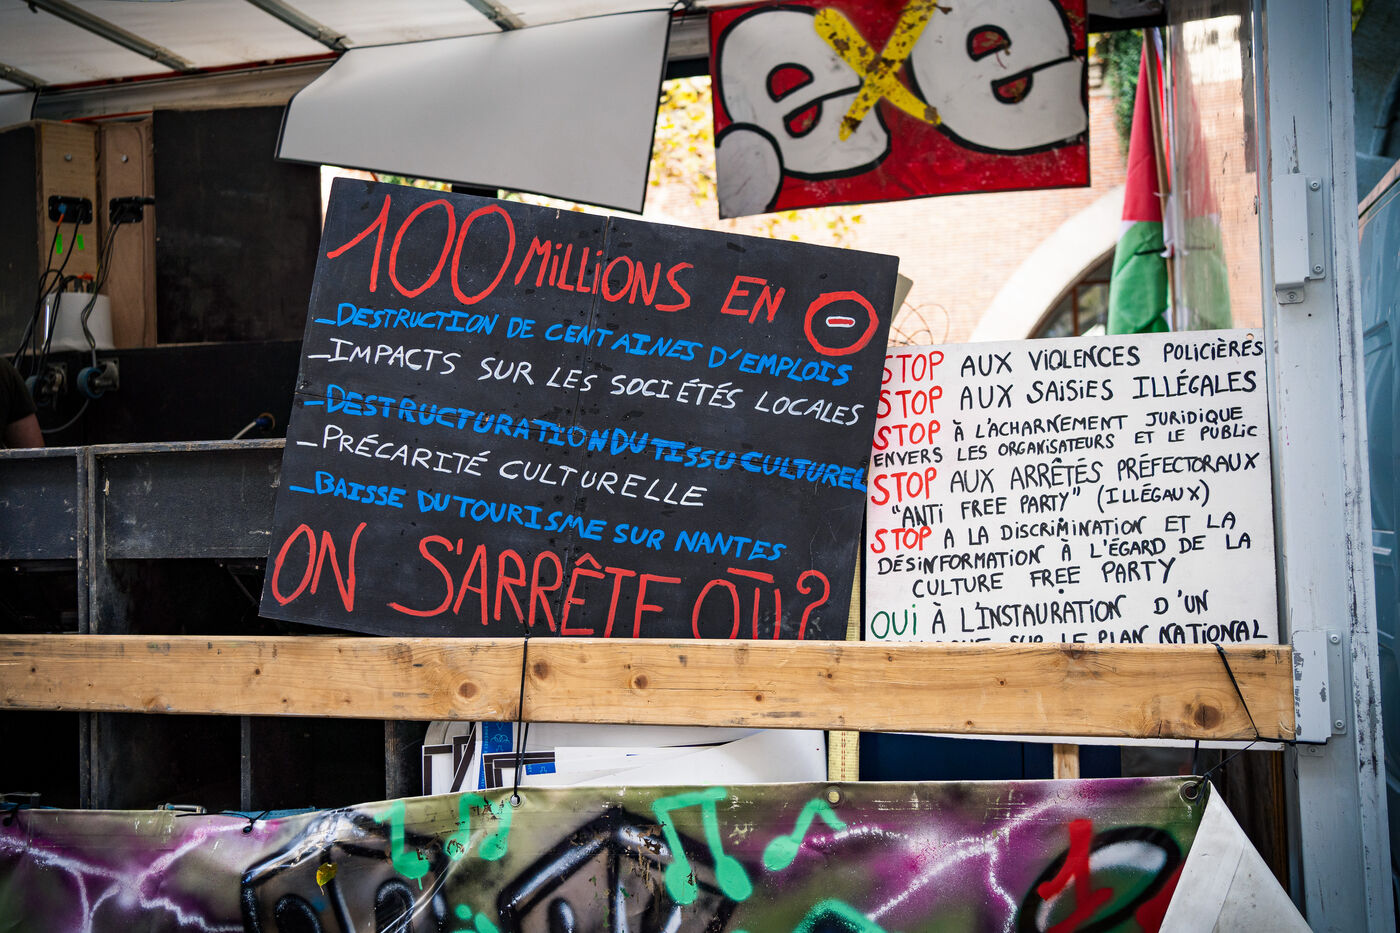 exe
100 MILLIONS EN
_DESTRUCTION DE CENTAINES D'EMPLOIS
_IMPACTS SUR LES SOCIÉTÉS LOCALES
_DESTRUCTURATION DU TISSU CULTUREL
_PRÉCARITÉ CULTURELLE
_BAISSE DU TOURISME SUR NANTES
ON S'ARRÊTE OÙ?
STOP AUX VIOLENCES POLICIÈRES
STOP AUX SAISIES ILLÉGALES
STOP À L'ACHARNEMENT JURIDIQUE
ENVERS LES ORGANISATEURS ET LE PUBLIC
STOP AUX ARRÊTÉS PRÉFECTORAUX
"ANTI FREE PARTY" (ILLÉGAUX)
STOP A LA DISCRIMINATION ET LA
DÉSINFORMATION À L'ÉGARD DE LA
CULTURE FREE PARTY
OUI À L'INSTAURATION D'UN
SUR LE PLAN NATIONAL